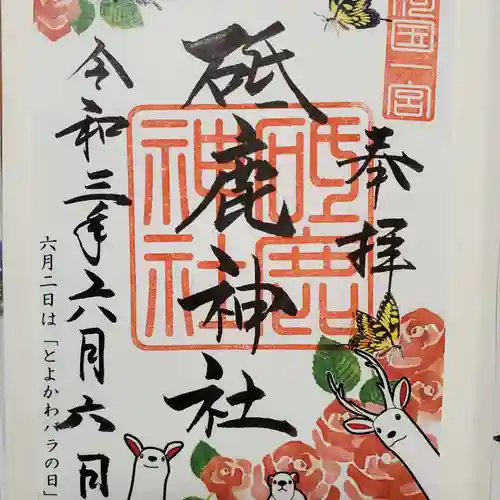 河国一宮
奉拝
砥鹿神社
砥鹿神社
令和三年六月六日
六月二日は「とよかわバラの日」